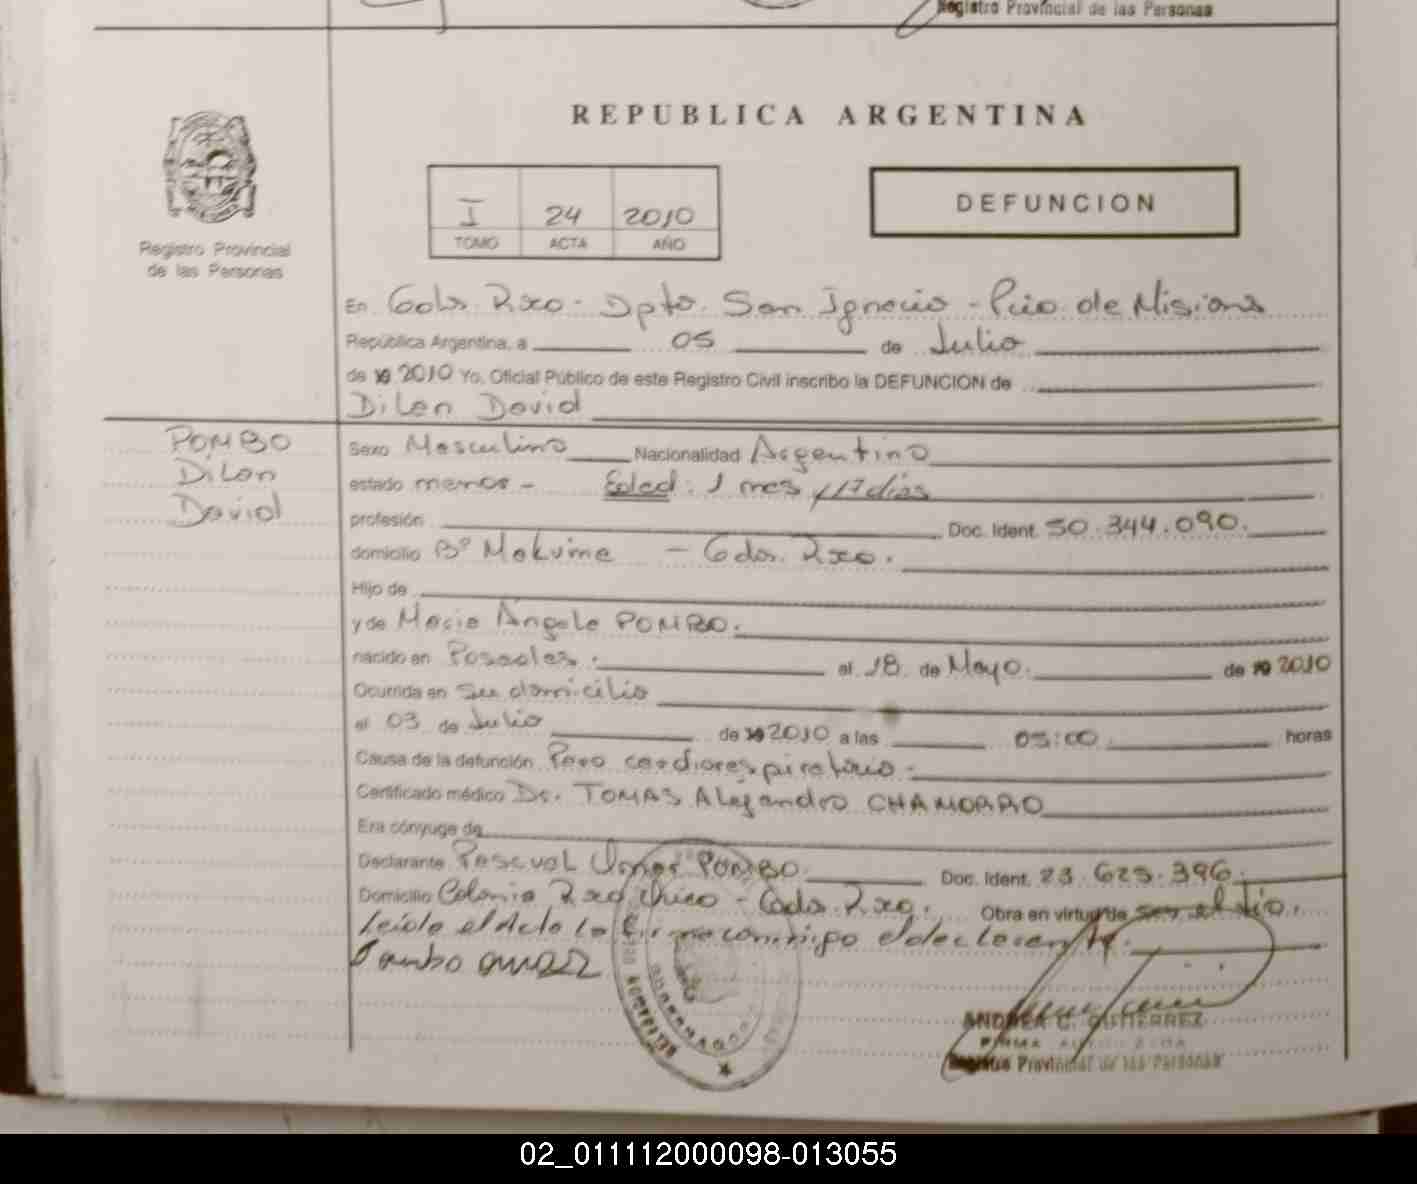 Registro Provincial de las Personas
REPUBLICA ARGENTINA
I 24 2010
TOMO ACTA AÑO
DEFUNCION
Registro Provincial
de las Personas
En Gdor. Roca - Dpto. San Ignacio - Pcia de Misiones
República Argentina, a 05 de Julio
de 19 2010 Yo, Oficial Público de este Registro Civil inscribo la DEFUNCION de
Dilan David
POMBO
Dilan
David
Sexo Masculino Nacionalidad Argentino
estado menor - Edad: 1 mes y 17 dias
profesión Doc. Ident. 50.344.090.
domicilio Bº - Gdor. Roca.
Hijo de
y de Maria Angela POMBO.
nacido en Posadas. el 18 de Mayo. de 19 2010
Ocurrida en su domicilio
el 03 de Julio de 19 2010 a las 05:00 horas
Causa de la defunción Paro cardiorespiratorio.
Certificado médico Dr. TOMAS Alejandro CHAMORRO
Era cónyuge de
Declarante Pascual Omar POMBO. Doc. Ident. 23.625.396.
Domicilio Colonia Roca Chico - Gdor. Roca. Obra en virtud de ser el tio.
Leida el Acta la firma conmigo el declarante.
Pombo omar
ANDREA C. GUTIERREZ
FIRMA AUTORIZADA
Registro Provincial de las Personas
02_011112000098-013055